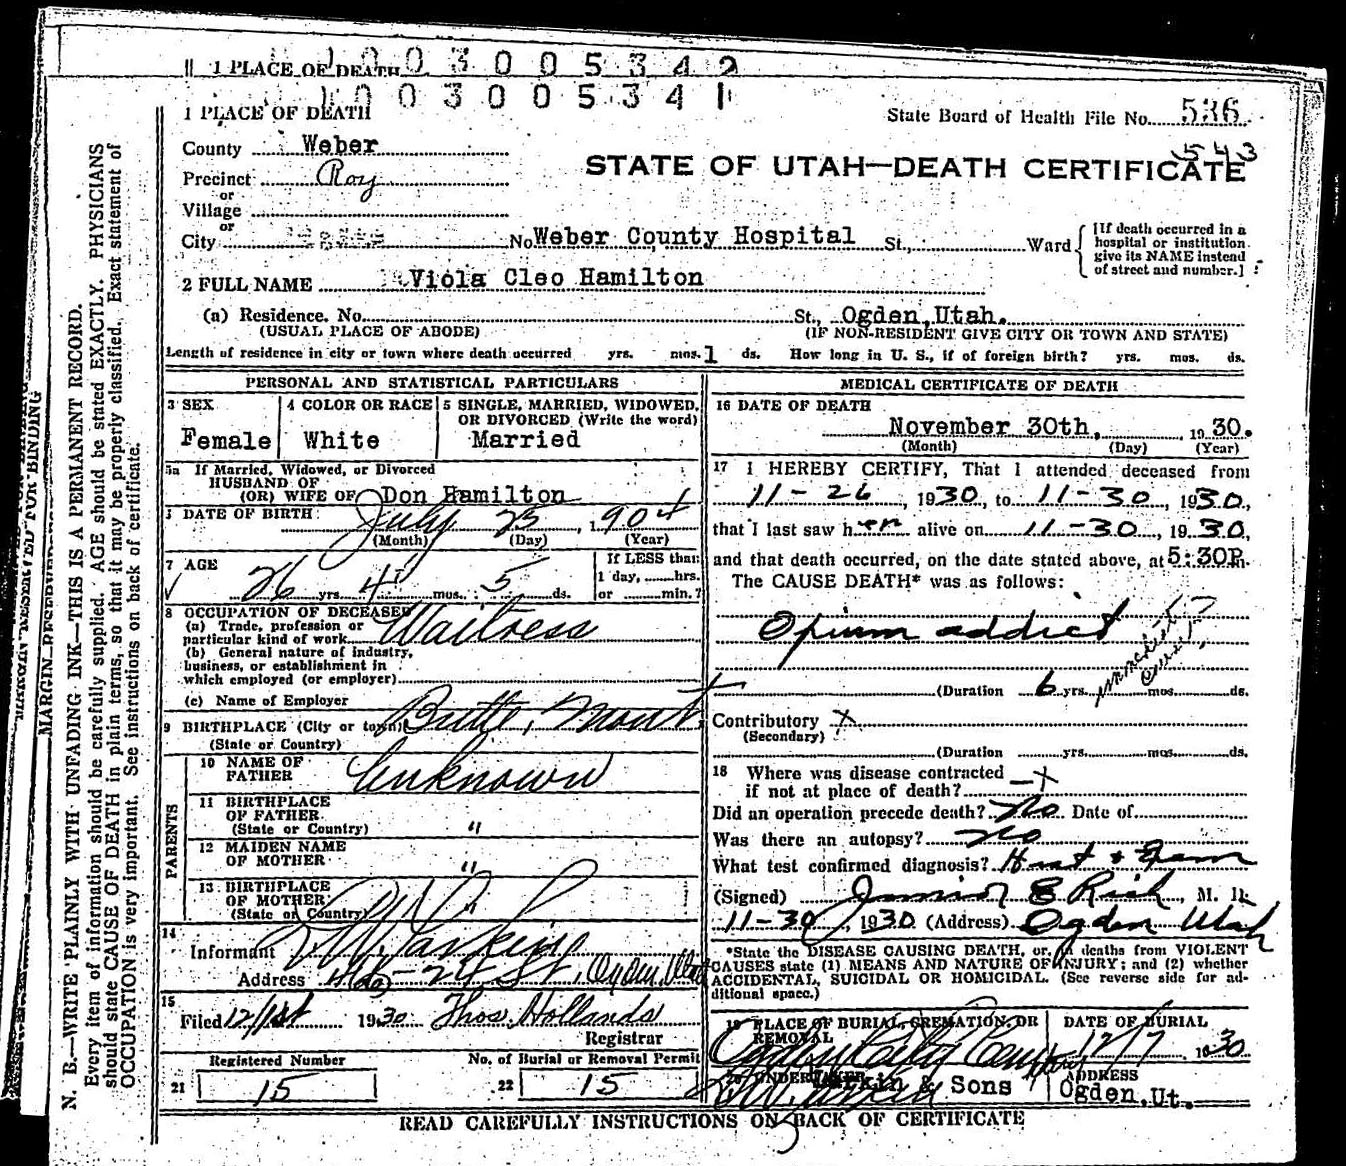 1 PLACE OF DEATH
1003005342
1003005341
1 PLACE OF DEATH
State Board of Health File No. 536
543
County Weber
STATE OF UTAH—DEATH CERTIFICATE
Precinct Roy
or
Village
or
City No. Weber County Hospital St., Ward
[If death occurred in a hospital or institution give its NAME instead of street and number.]
2 FULL NAME Viola Cleo Hamilton
(a) Residence. No. St., Ogden, Utah.
(USUAL PLACE OF ABODE) (IF NON-RESIDENT GIVE CITY OR TOWN AND STATE)
Length of residence in city or town where death occurred yrs. mos. 1 ds. How long in U. S., if of foreign birth? yrs. mos. ds.
PERSONAL AND STATISTICAL PARTICULARS
3 SEX 4 COLOR OR RACE 5 SINGLE, MARRIED, WIDOWED, OR DIVORCED (Write the word)
Female White Married
5a If Married, Widowed, or Divorced
HUSBAND OF
(OR) WIFE OF Don Hamilton
DATE OF BIRTH July 25, 1904
(Month) (Day) (Year)
7 AGE
26 yrs. 4 mos. 5 ds.
If LESS than
1 day, hrs.
or min.?
8 OCCUPATION OF DECEASED
(a) Trade, profession or
particular kind of work Waitress
(b) General nature of industry,
business, or establishment in
which employed (or employer)
(c) Name of Employer
9 BIRTHPLACE (City or town) Butte, Mont.
(State or Country)
PARENTS
10 NAME OF
FATHER Unknown
11 BIRTHPLACE
OF FATHER
(State or Country) "
12 MAIDEN NAME
OF MOTHER "
13 BIRTHPLACE
OF MOTHER
(State or Country)
14
Informant Larkin
Address 24 St. Ogden, Utah
15
Filed 12/1st 1930 Thos. Hollands
Registrar
Registered Number No. of Burial or Removal Permit
21 15 22 15
MEDICAL CERTIFICATE OF DEATH
16 DATE OF DEATH
November 30th, 1930.
(Month) (Day) (Year)
17 I HEREBY CERTIFY, That I attended deceased from
11-26, 1930, to 11-30, 1930,
that I last saw her alive on 11-30, 1930,
and that death occurred, on the date stated above, at 5:30P m.
The CAUSE DEATH* was as follows:
Opium addict
immediate cause?
(Duration 6 yrs. mos. ds.
Contributory X
(Secondary)
(Duration yrs. mos. ds.
18 Where was disease contracted
if not at place of death? — X
Did an operation precede death? No Date of
Was there an autopsy? No
What test confirmed diagnosis? Hist & Exam
(Signed) Junior E Rich, M. D.
11-30, 1930 (Address) Ogden Utah
*State the DISEASE CAUSING DEATH, or, in deaths from VIOLENT
CAUSES state (1) MEANS AND NATURE OF INJURY; and (2) whether
ACCIDENTAL, SUICIDAL OR HOMICIDAL. (See reverse side for ad-
ditional space.)
19 PLACE OF BURIAL, CREMATION, OR REMOVAL DATE OF BURIAL
Ogden City Cem 12/7, 1930
20 UNDERTAKER ADDRESS
Larkin & Sons Ogden, Ut.
READ CAREFULLY INSTRUCTIONS ON BACK OF CERTIFICATE
MARGIN RESERVED FOR BINDING
N. B.—WRITE PLAINLY WITH UNFADING INK—THIS IS A PERMANENT RECORD.
Every item of information should be carefully supplied. AGE should be stated EXACTLY. PHYSICIANS
should state CAUSE OF DEATH in plain terms, so that it may be properly classified. Exact statement of
OCCUPATION is very important. See instructions on back of certificate.